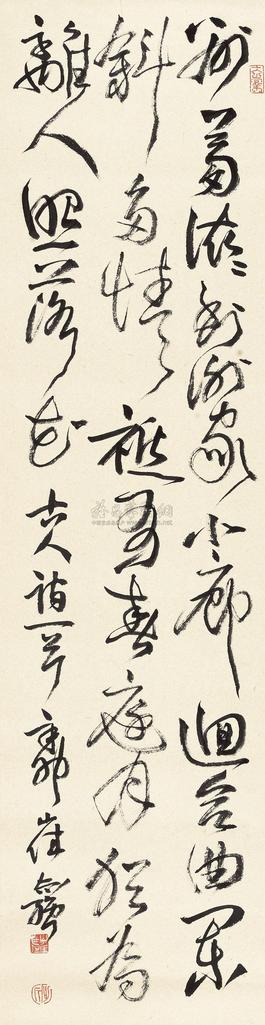 別夢依依到謝家小廊迴合曲闌
斜多情祗有春庭月猶為
離人照落花古人詩一首